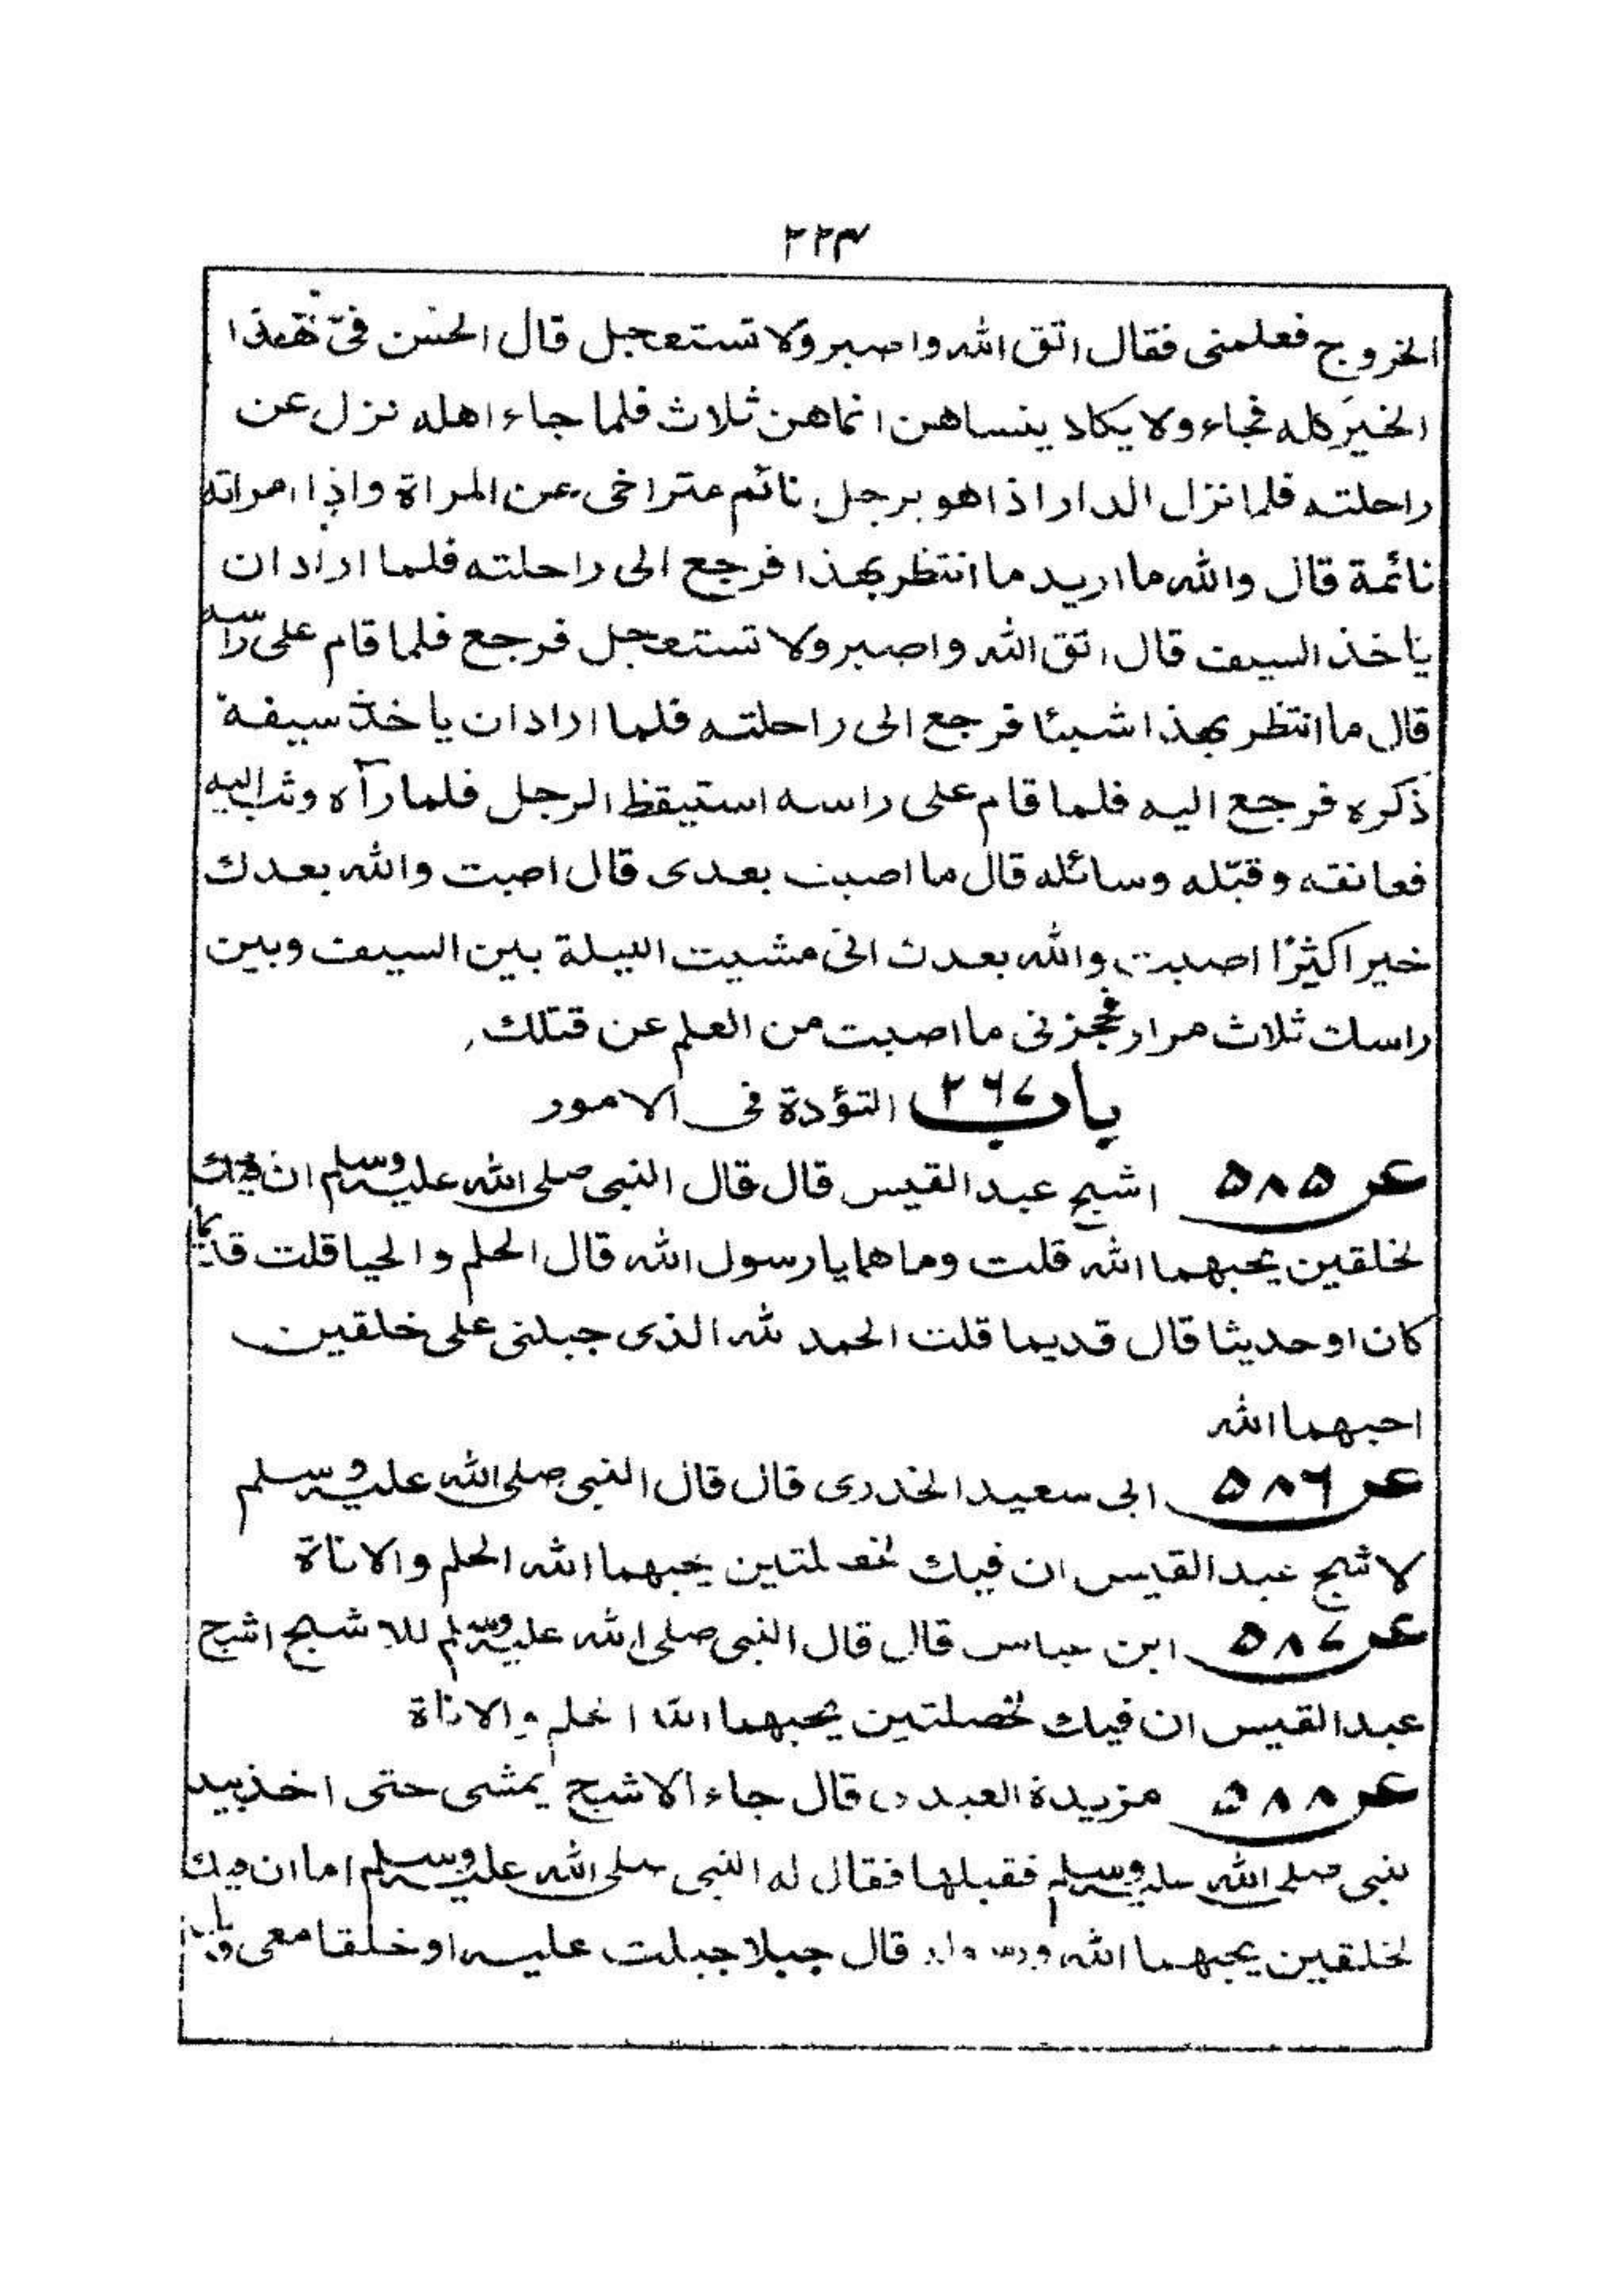 ٢٢٣
الخروج فعلمنى فقال اتق الله واصبر ولا تستعجل قال الحسن فى هذا
الخير كله فجاء ولا يكاد ينساهن انماهن ثلاث فلما جاء اهله نزل عن
راحلته فلما نزل الدار اذا هو برجل نائم متراخى عن المراة واذا امراته
نائمة قال والله ما اريد ما انتظر بهذا فرجع الى راحلته فلما اراد ان
ياخذ السيف قال اتق الله واصبر ولا تستعجل فرجع فلما قام على راسه
قال ما انتظر بهذا شيئا فرجع الى راحلته فلما اراد ان ياخذ سيفه
ذكره فرجع اليه فلما قام على راسه استيقظ الرجل فلما رآه وثب اليه
فعانقه وقبّله وسائله قال ما اصبت بعدى قال اصبت والله بعدك
خيرا كثيرًا اصبت والله بعدك انى مشيت الليلة بين السيف وبين
راسك ثلاث مرار فحجزنى ما اصبت من العلم عن قتلك
باب ٢٦٧ التؤدة فى الامور
عن ٥٨٥ اشج عبد القيس قال قال النبى صلى الله عليه وسلم ان فيك
لخلقين يحبهما الله قلت وما هما يا رسول الله قال الحلم والحيا قلت قديما
كان او حديثا قال قديما قلت الحمد لله الذى جبلنى على خلقين
احبهما الله
عن ٥٨٦ ابى سعيد الخدرى قال قال النبى صلى الله عليه وسلم
لاشج عبد القيس ان فيك لخصلتين يحبهما الله الحلم والاناة
عن ٥٨٧ ابن عباس قال قال النبى صلى الله عليه وسلم للاشج اشج
عبد القيس ان فيك لخصلتين يحبهما الله الحلم والاناة
عن ٥٨٨ مزيدة العبدى قال جاء الاشج يمشى حتى اخذ بيد
نبى صلى الله عليه وسلم فقبلها فقال له النبى صلى الله عليه وسلم اما ان فيك
لخلقين يحبهما الله ورسوله قال جبلا جبلت عليه او خلقا معى